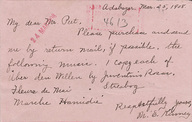 Mar. 25, 1908
My dear Mr. Pet,
4613
Please purchase and
me by return mail, if possible, the
following music. 1 copy each of
Uber den Wellen by Juventin Rosas.
Fleurs de Mai
Marche Hamidié
Respectfully yours,
M. E.